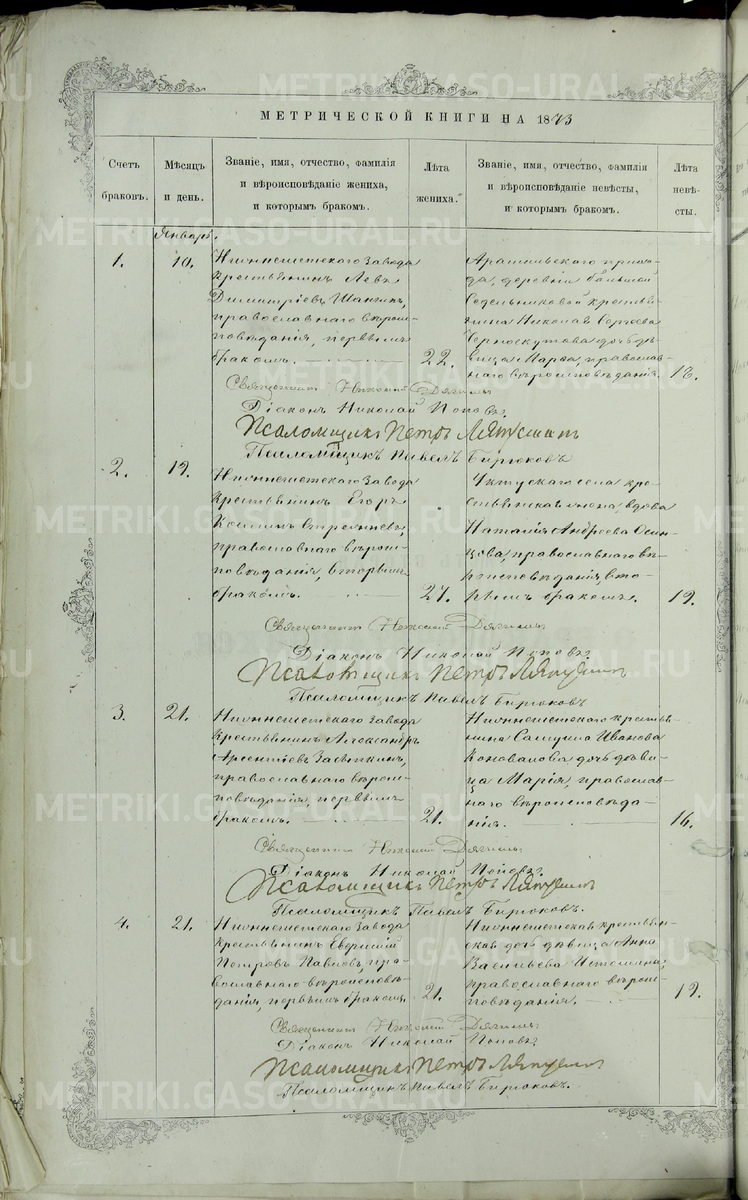 МЕТРИЧЕСКОЙ КНИГИ НА 1873
Счетъ
браковъ.
Мѣсяцъ
и день.
Званіе, имя, отчество, фамилія
и вѣроисповѣданіе жениха,
и которымъ бракомъ.
Лѣта
жениха.
Званіе, имя, отчество, фамилія
и вѣроисповѣданіе невѣсты,
и которымъ бракомъ.
Лѣта
невѣ-
сты.
Январь.
1.
10.
Нижнеисетскаго завода
крестьянинъ Левъ
Димитріевъ
православнаго вѣроис-
повѣданія, первымъ
бракомъ.
22.
Арамильскаго прихо-
да, деревни большой
Седельниковой крестья-
нина Николая Сергеева
Черноскутова дочь дѣ-
вица Марѳа, православ-
наго вѣроисповѣданія.
18.
Священникъ Николай
Діаконъ Николай Поповъ.
Псаломщикъ Петръ Ляпустинъ
Псаломщикъ Павелъ Бирюковъ
2.
19.
Нижнеисетскаго завода
крестьянинъ Егоръ
православнаго вѣроис-
повѣданія, вторымъ
бракомъ.
27.
Уктускаго села кре-
стьянская жена, вдова
Наталія Андреева Осин-
цова, православнаго вѣ-
роисповѣданія вто-
рымъ бракомъ.
19.
Священникъ Николай
Діаконъ Николай Поповъ.
Псаломщикъ Петръ Ляпустинъ
Псаломщикъ Павелъ Бирюковъ
3.
21.
Нижнеисетскаго завода
крестьянинъ Александръ
Арсентіевъ Засыпкинъ,
православнаго вѣроис-
повѣданія, первымъ
бракомъ.
21.
Нижнеисетскаго крестья-
нина Самуила Иванова
Коновалова дочь дѣви-
ца Марія, православ-
наго вѣроисповѣда-
нія.
16.
Священникъ Николай
Діаконъ Николай Поповъ.
Псаломщикъ Петръ Ляпустинъ
Псаломщикъ Павелъ Бирюковъ.
4.
21.
Нижнеисетскаго завода
крестьянинъ
Петровъ Павловъ, пра-
вославнаго вѣроисповѣ-
данія, первымъ бракомъ.
21.
Нижнеисетская крестьян-
ская дочь дѣвица Анна
Васильева Истомина,
православнаго вѣроис-
повѣданія.
19.
Священникъ Николай
Діаконъ Николай Поповъ.
Псаломщикъ Петръ Ляпустинъ
Псаломщикъ Павелъ Бирюковъ.
METRIKI.GASO-URAL.RU